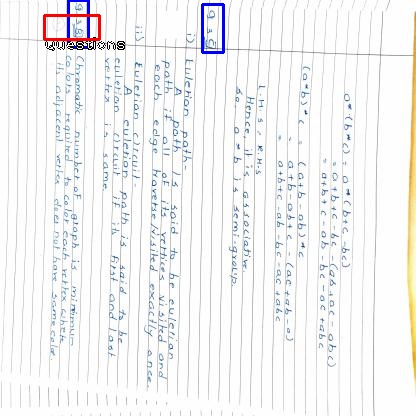 a*(b*c) = a*(b+c-bc)
= a+b+c-bc-(ab+ac-abc)
= a+b+c-ab-bc-ac+abc
(a*b)*c = (a+b-ab)*c
= a+b-ab+c-(ac+
= a+b+c-ab-bc-ac+abc
L.H.S = R.H.S
Hence, it is associative.
So, a*b is semi-group.
i) Eulerian path-
A path is said to be eulerian
path if all of its vertices visited and
each edge traverse/visited exactly once.
ii) Eulerian circuit-
A eulerian path is said to be
eulerian circuit if its first and last
vertex is same.
Chromatic number of graph is minimum
colors required to color each vertex where
its adjacent vertex does not have same color.
Questions